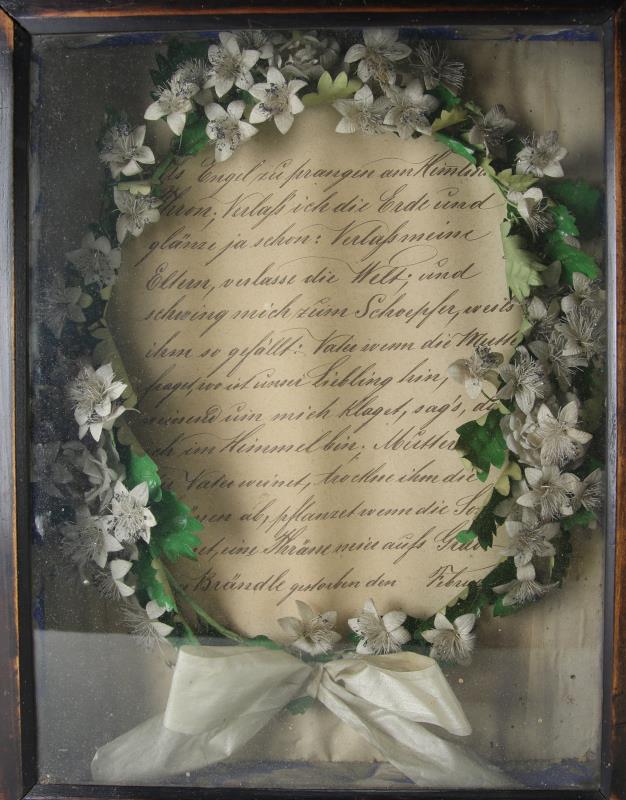 Als Engel zu prangen am Himlis
Thron, Verlaß ich die Erde und
glänze ja schon: Verlaß meine
Eltern, verlasse die Welt; und
schwing mich zum Schoepfer, weils
ihm so gefällt: Vater wenn die Mutte
fraget, wo ist unser Liebling hin,
weinend um mich klaget, sag's, da
ich im Heimmel bin. Mutter
Vater weinet, trockne ihm die
ab, pflanzet wenn die So
eine Thräne mir aufs Gra
Brändle gestorben den Febru